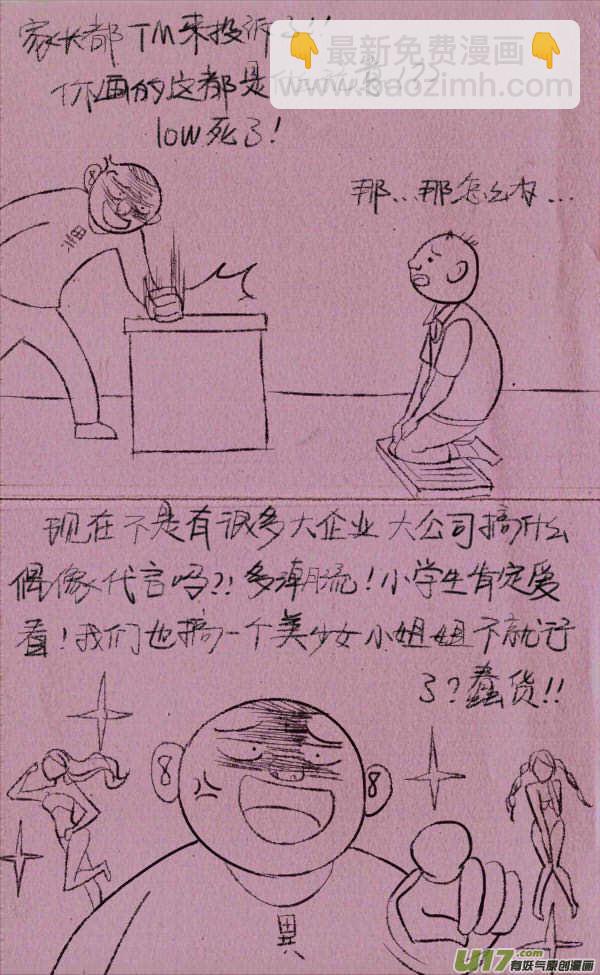 家长都TM来投诉了!!
最新免费漫画
www.baozimh.com
你画的这都是
low死了!
那...那怎么办...
现在不是有很多大企业大公司搞什么
偶像代言吗?!多潮流!小学生肯定爱
看!我们也搞一个美少女小姐姐不就行
了?蠢货!!
異
U17.com
有妖气原创漫画